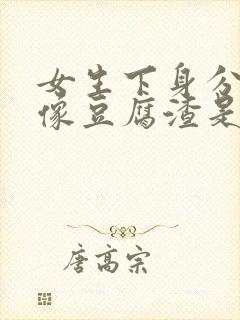 女生下身分
像豆腐渣是
唐高宗